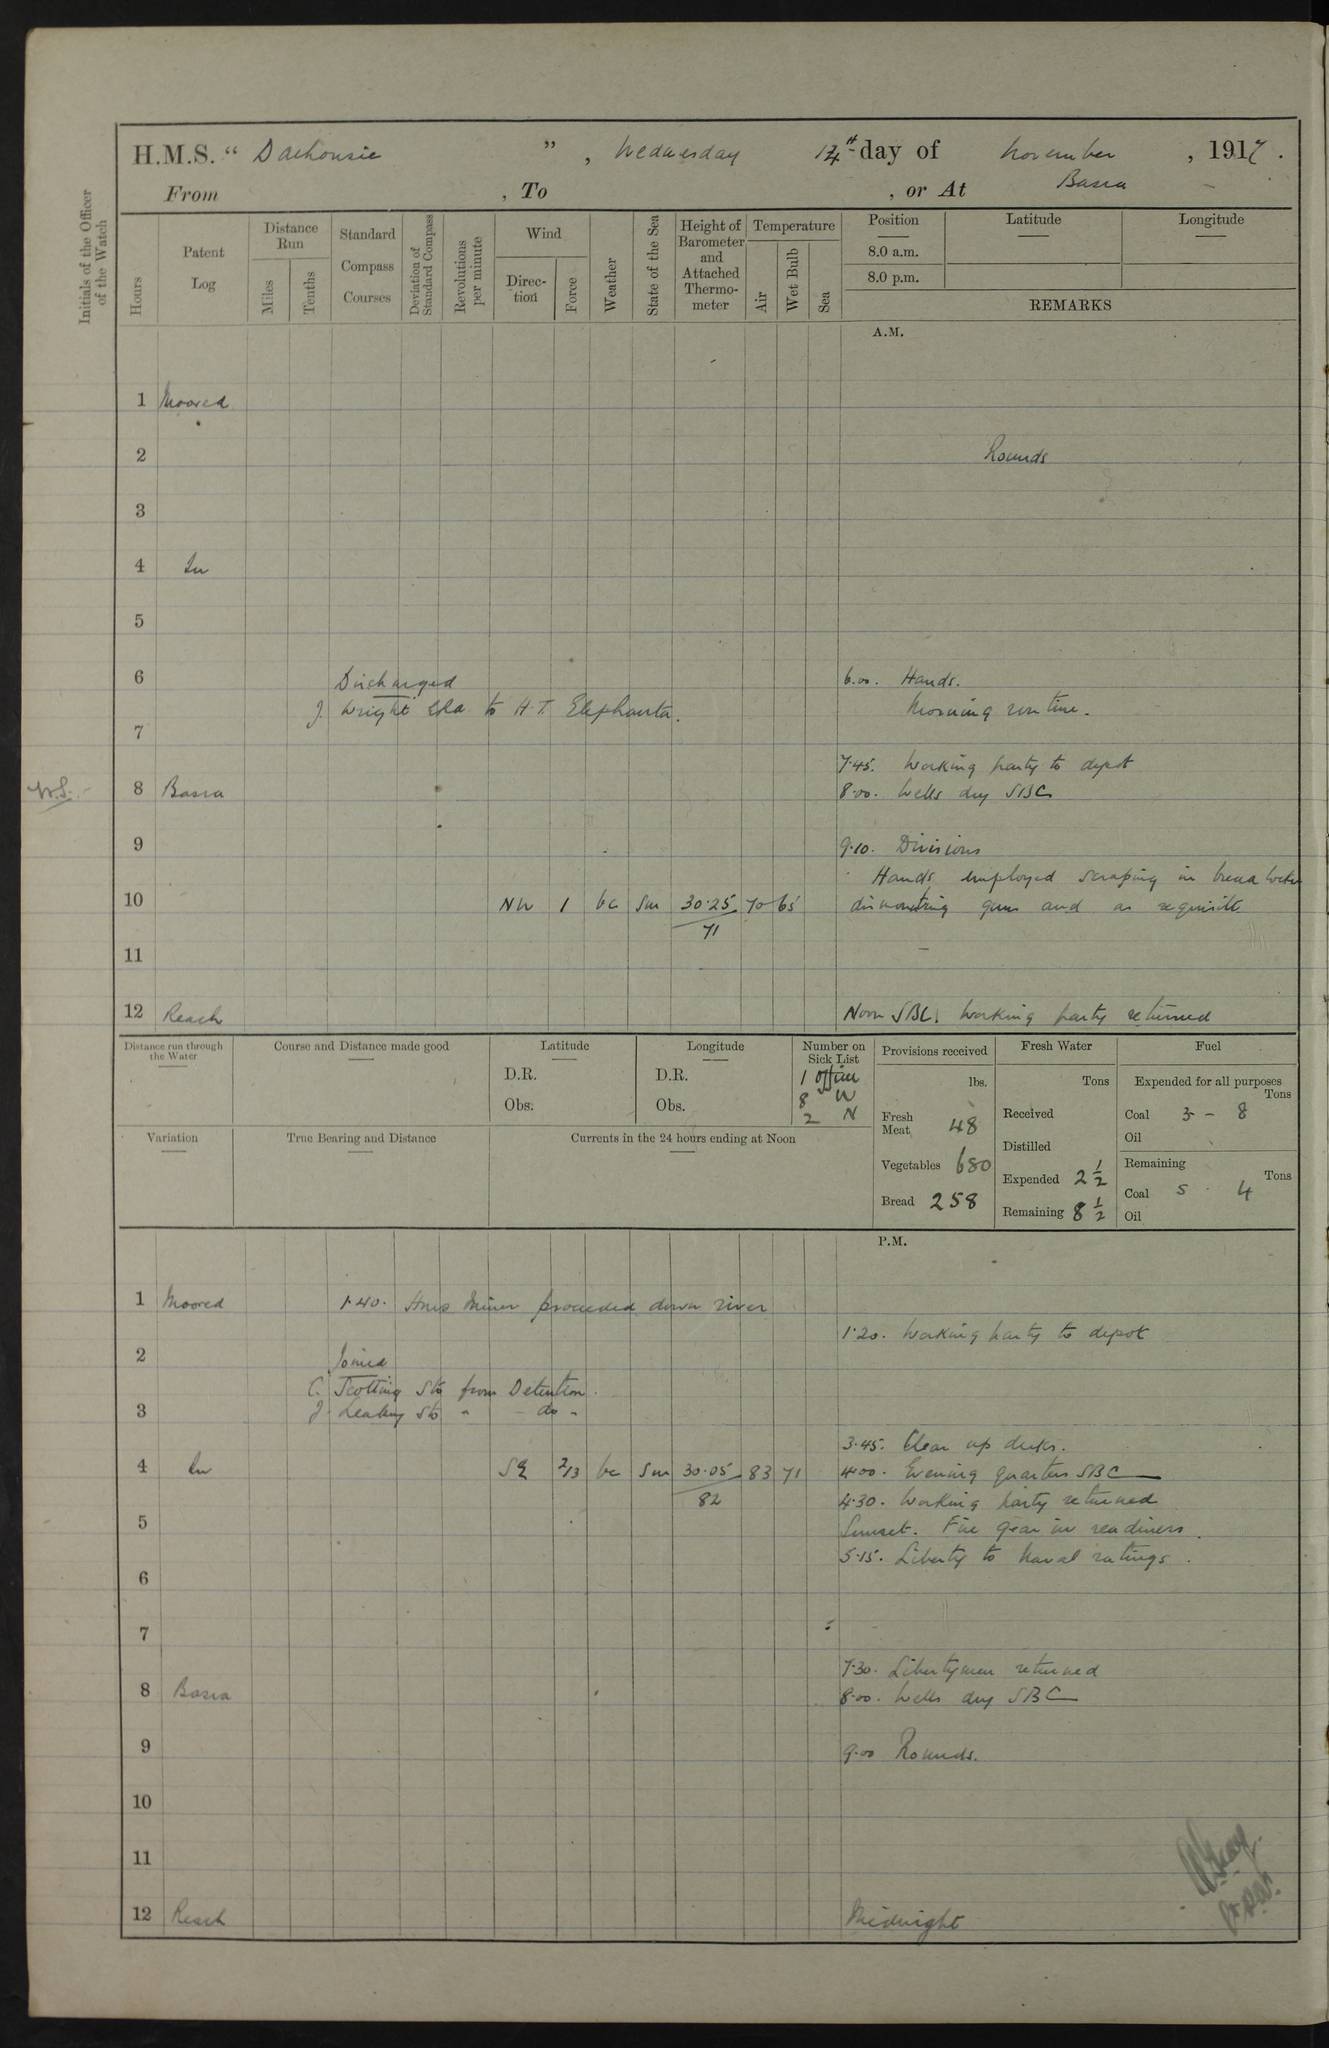 H.M.S. " Dalhousie ", Wednesday 14th day of November, 1917.
From , To , or At Basra
Initials of the Officer of the Watch
Hours
Patent Log
Distance Run
Miles
Tenths
Standard Compass Courses
Deviation of Standard Compass
Revolutions per minute
Wind
Direction
Force
Weather
State of the Sea
Height of Barometer and Attached Thermometer
Temperature
Air
Wet Bulb
Sea
Position
Latitude
Longitude
8.0 a.m.
8.0 p.m.
REMARKS
A.M.
1 Moored
2 Rounds
3
4 In
5
6 Discharged 6.00. Hands.
J. Wright to H.T. Elephanta. Morning routine.
7
7.45. Working party to depot
W.S. 8 Basra 8.00. Wells dry SBC
9 9.10. Divisions
Hands employed scraping in
10 NW 1 bc Sm 30.25 70 65 dismounting gun and as requisite
71
11
12 Reach Noon SBC. Working party returned
Distance run through the Water
Course and Distance made good
Latitude
D.R.
Obs.
Longitude
D.R.
Obs.
Number on Sick List
1 officer
8 W
2 N
Provisions received
lbs.
Fresh Meat 48
Vegetables 680
Bread 258
Fresh Water
Tons
Received
Distilled
Expended 2 1/2
Remaining 8 1/2
Fuel
Expended for all purposes
Tons
Coal 3 - 8
Oil
Remaining
Tons
Coal 5 . 4
Oil
Variation
True Bearing and Distance
Currents in the 24 hours ending at Noon
P.M.
1 Moored 1.40. HMS Miner proceeded down river
1.20. Working party to depot
2 Joined
C. Scotting Sto from Detention.
3 J. Sto " - do -
3.45. Clear up decks.
4 In SE 2/3 bc Sm 30.05 83 71 4.00. Evening quarters SBC
82 4.30. Working party returned
5 Sunset. Fire gear in readiness.
5.15. Liberty to Naval ratings.
6
7
7.30. Libertymen returned
8 Basra 8.00. Wells dry SBC
9 9.00 Rounds.
10
11
12 Reach Midnight